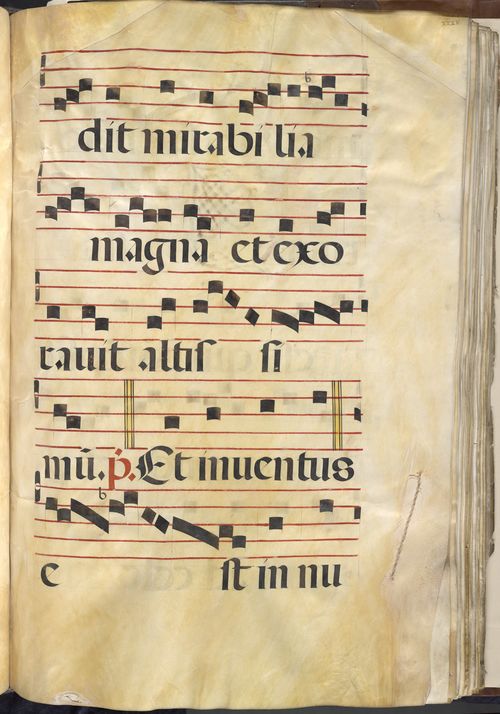 dit mirabilia
magna et exo
rauit altis si
mū. p̄. Et inuentus
e st in nu